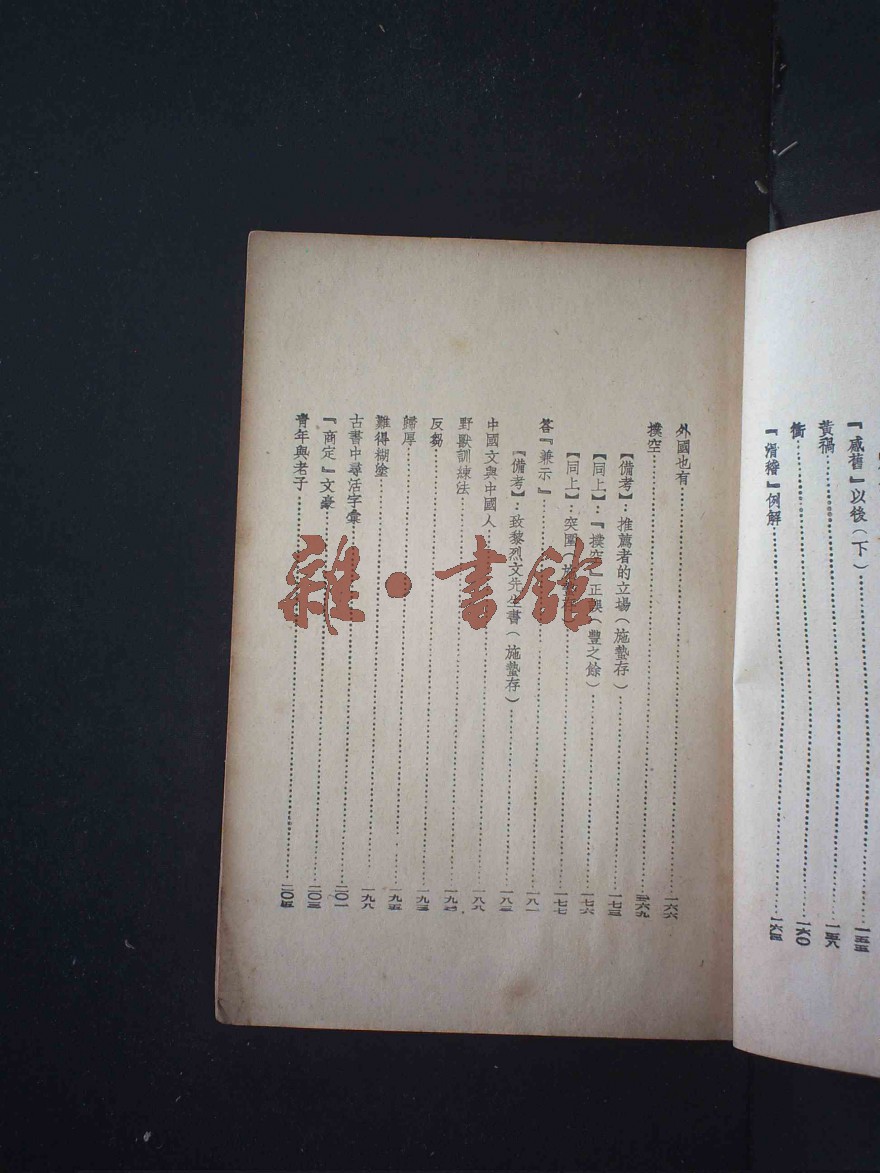 『感舊』以後（下）……一五五
黃禍……一五八
衝……一六〇
『滑稽』例解……一六四
外國也有……一六六
撲空……一六九
【備考】：推薦者的立場（施蟄存）……一七三
【同上】：『撲空』正誤（豐之餘）……一七六
【同上】：突圍（施蟄存）……一七七
答『兼示』……一八一
【備考】：致黎烈文先生書（施蟄存）……一八三
中國文與中國人……一八八
野獸訓練法……一九
反芻……一九三
歸厚……一九五
難得糊塗……一九八
古書中尋活字彙……二〇一
『商定』文豪……二〇三
青年與老子……二〇五
雜·書館